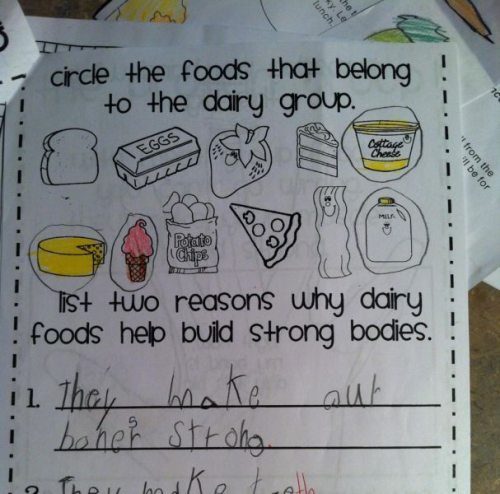 circle the foods that belong
to the dairy group.
EGGS
Cottage
Cheese
Potato
Chips
MILK
list two reasons why dairy
foods help build strong bodies.
1. They make our
bones strong.
They make teeth
lunch.
from the
ll be for